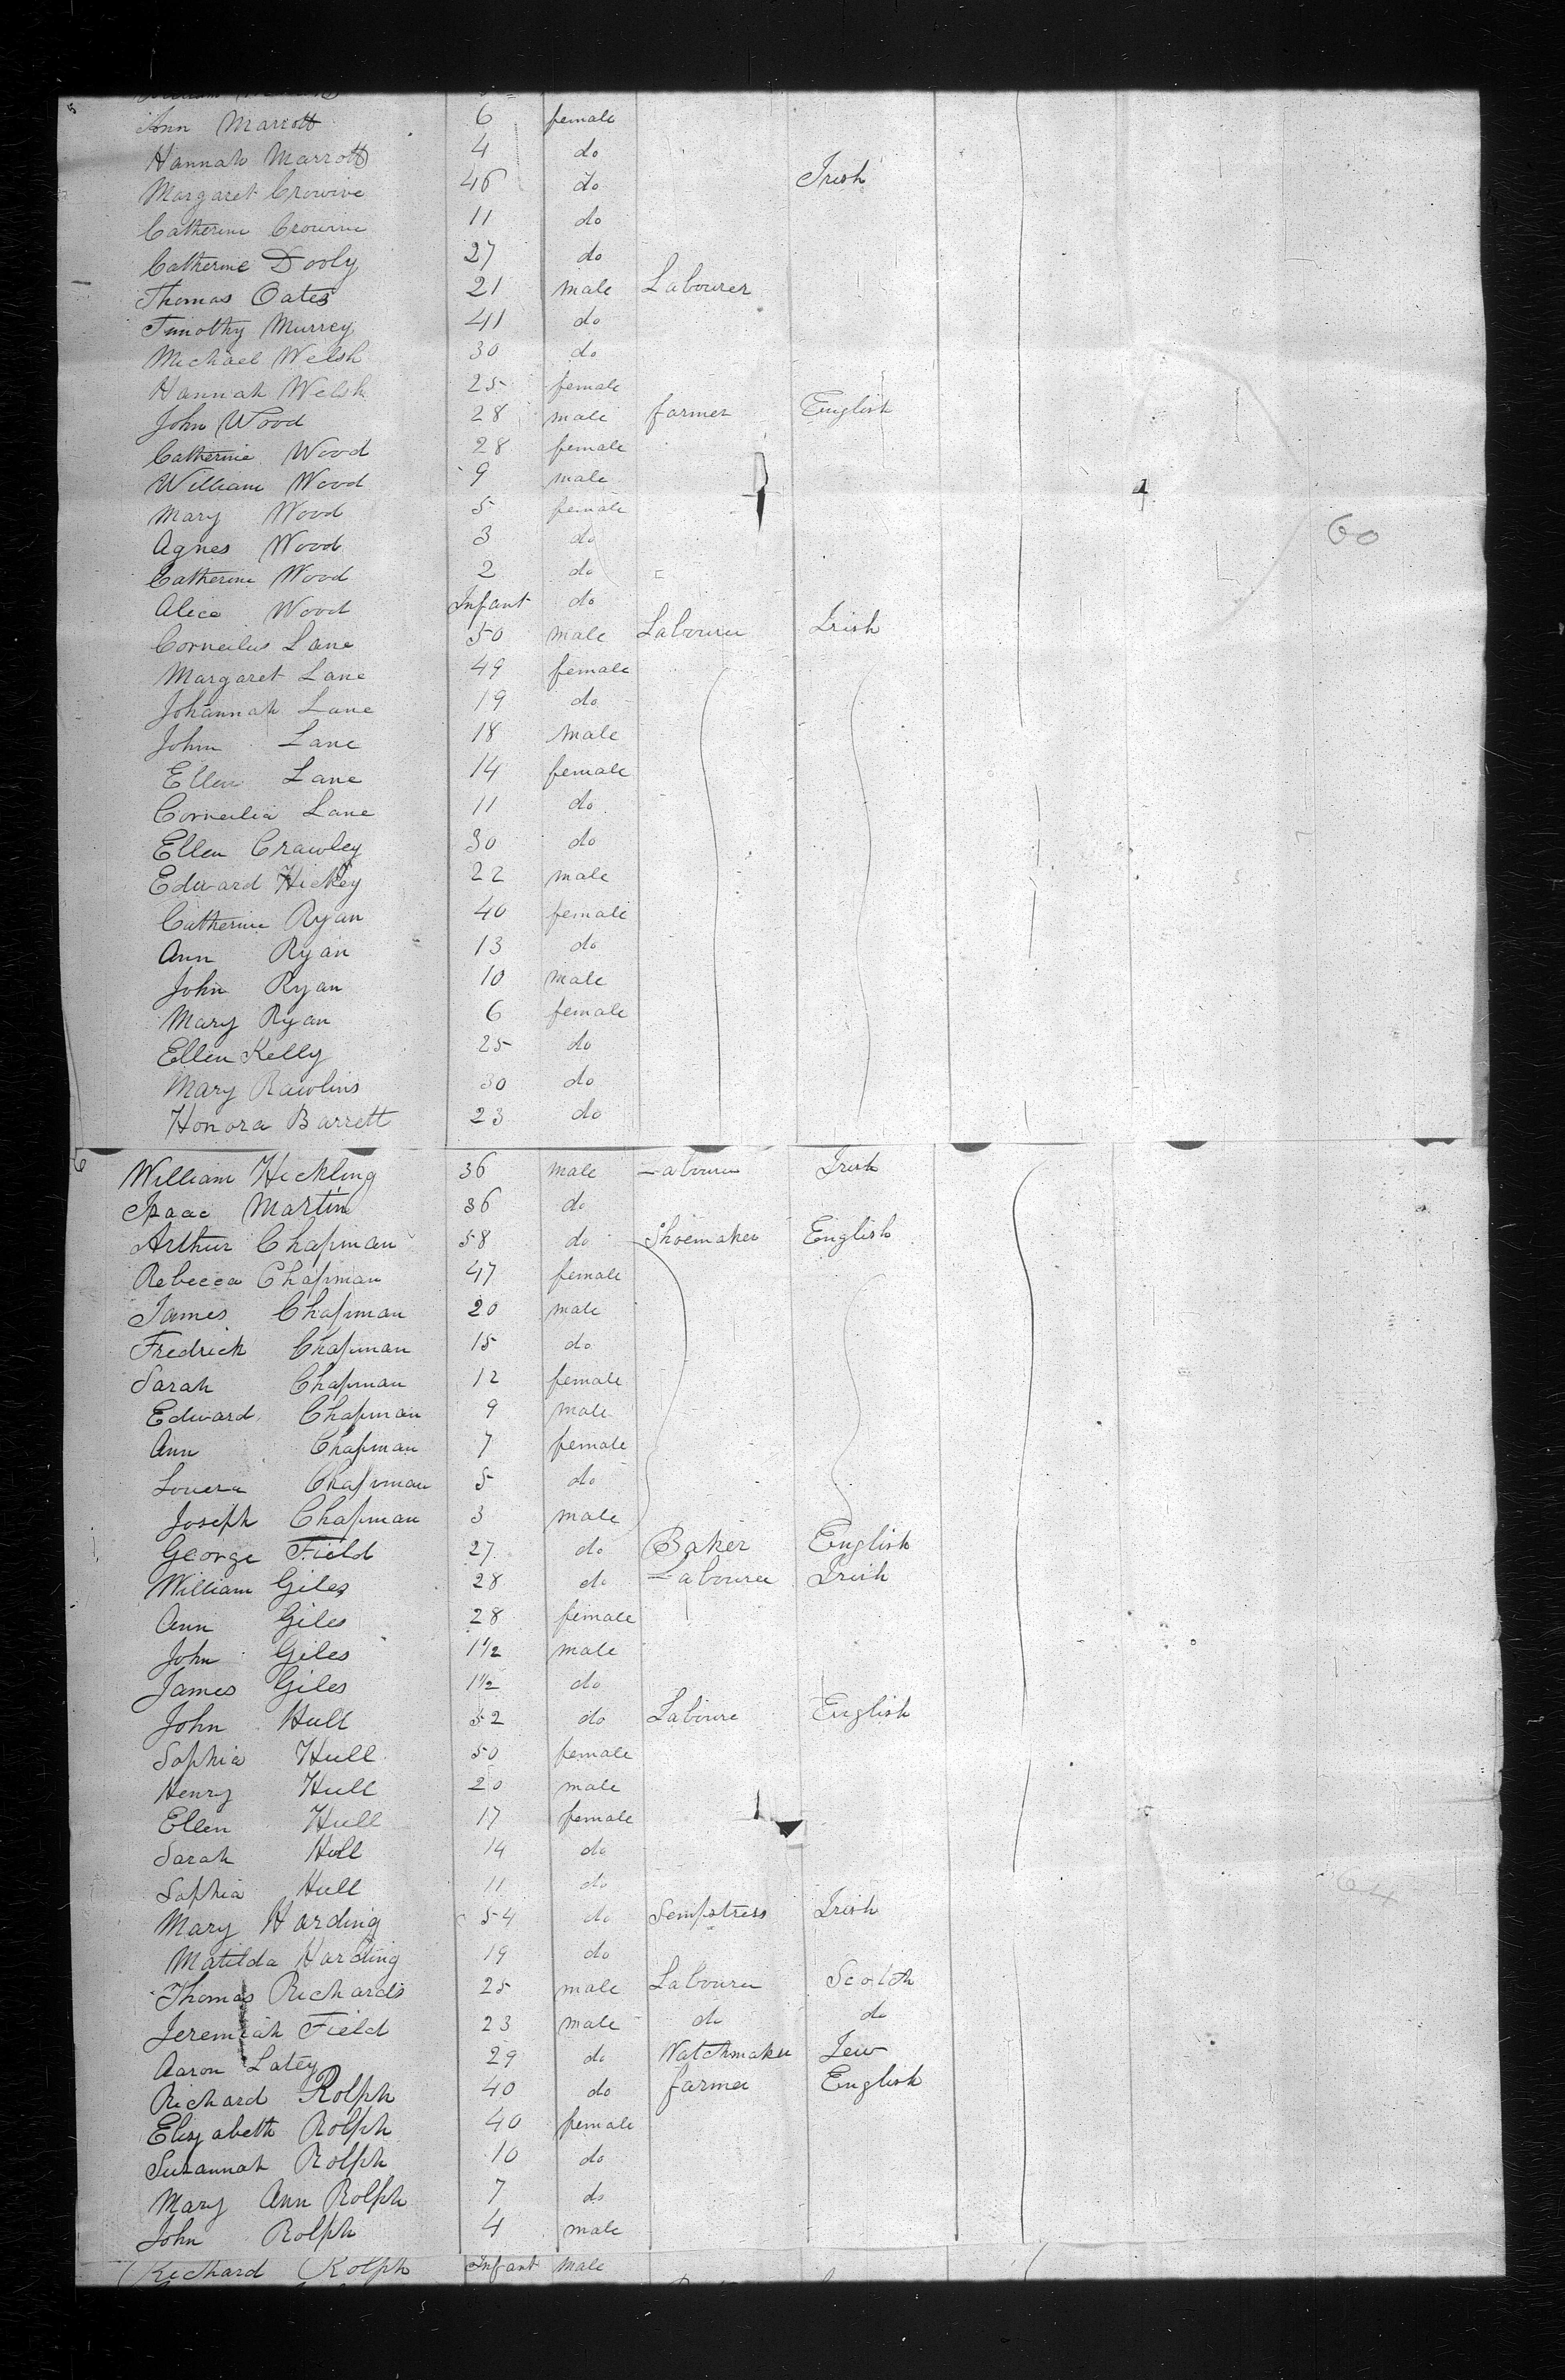 Ann Marrott 6 female
Hannah Marrott 4 do
Margaret Crowine 46 do Irish
Catherine Crowine 11 do
Catherine Dooly 27 do
Thomas Oates 21 male Labourer
Timothy Murrey 41 do
Michael Welsh 30 do
Hannah Welsh 25 female
John Wood 28 male farmer English
Catherine Wood 28 female
William Wood 9 male
Mary Wood 5 female
Agnes Wood 3 do
60
Catherine Wood 2 do
Alice Wood Infant do
Corneilus Lane 50 male Labourer Irish
Margaret Lane 49 female
Johannah Lane 19 do
John Lane 18 male
Ellen Lane 14 female
Corneilia Lane 11 do
Ellen Crawley 30 do
Edward Hickey 22 male
Catherine Ryan 40 female
Ann Ryan 13 do
John Ryan 10 male
Mary Ryan 6 female
Ellen Kelly 25 do
Mary Rawlins 30 do
Honora Barrett 23 do
6
William Hickling 36 male Labourer Irish
Isaac Martin 36 do
Arthur Chapman 58 do Shoemaker English
Rebecca Chapman 47 female
James Chapman 20 male
Fredrick Chapman 15 do
Sarah Chapman 12 female
Edward Chapman 9 male
Ann Chapman 7 female
Louera Chapman 5 do
Joseph Chapman 3 male
George Field 27 do Baker English
William Giles 28 do Labourer Irish
Ann Giles 28 female
John Giles 1½ male
James Giles 1½ do
John Hull 52 do Laboure English
Sophia Hull 50 female
Henry Hull 20 male
Ellen Hull 17 female
Sarah Hull 14 do
Sophia Hull 11 do
64
Mary Harding 54 do Sempstress Irish
Matilda Harding 19 do
Thomas Richards 25 male Labourer Scotch
Jeremiah Field 23 male do do
Aaron Latey 29 do Watchmaker Jew
Richard Rolph 40 do farmer English
Elizabeth Rolph 40 female
Susannah Rolph 10 do
Mary Ann Rolph 7 do
John Rolph 4 male
Richard Rolph Infant Male